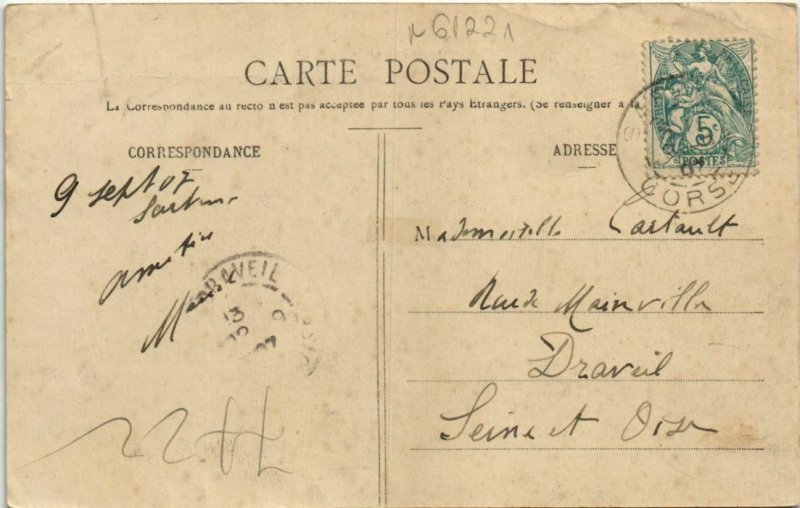 61221
CARTE POSTALE
La Correspondance au recto n'est pas acceptée par tous les Pays Etrangers. (Se renseigner à la
CORRESPONDANCE
ADRESSE
5c
POSTES
CORSE
9 sept 07
Mademoiselle Cartault
Rue de Mainville
Draveil
Seine et Oise
DRAVEIL
13
9
07